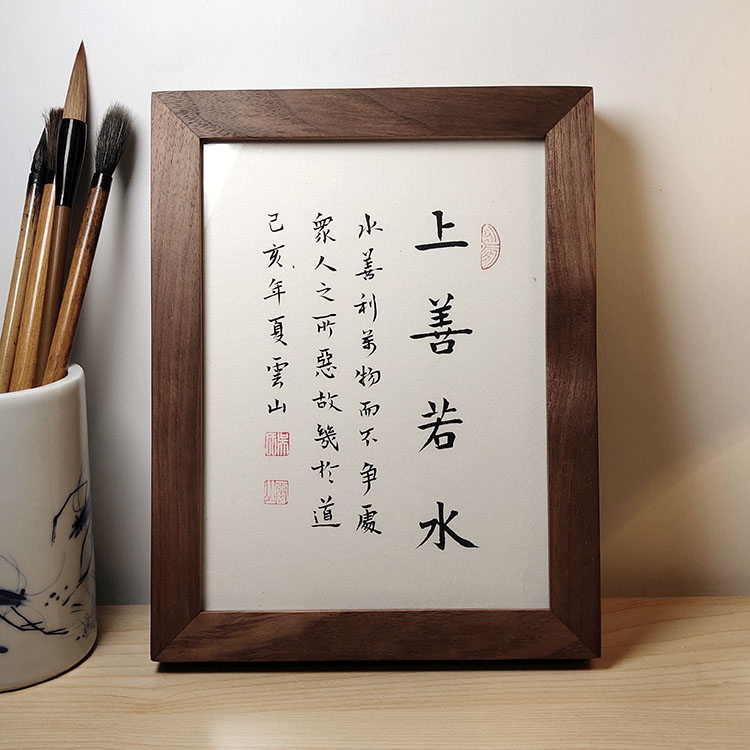 上善若水
水善利萬物而不争處
衆人之所惡故幾於道
己亥年夏雲山